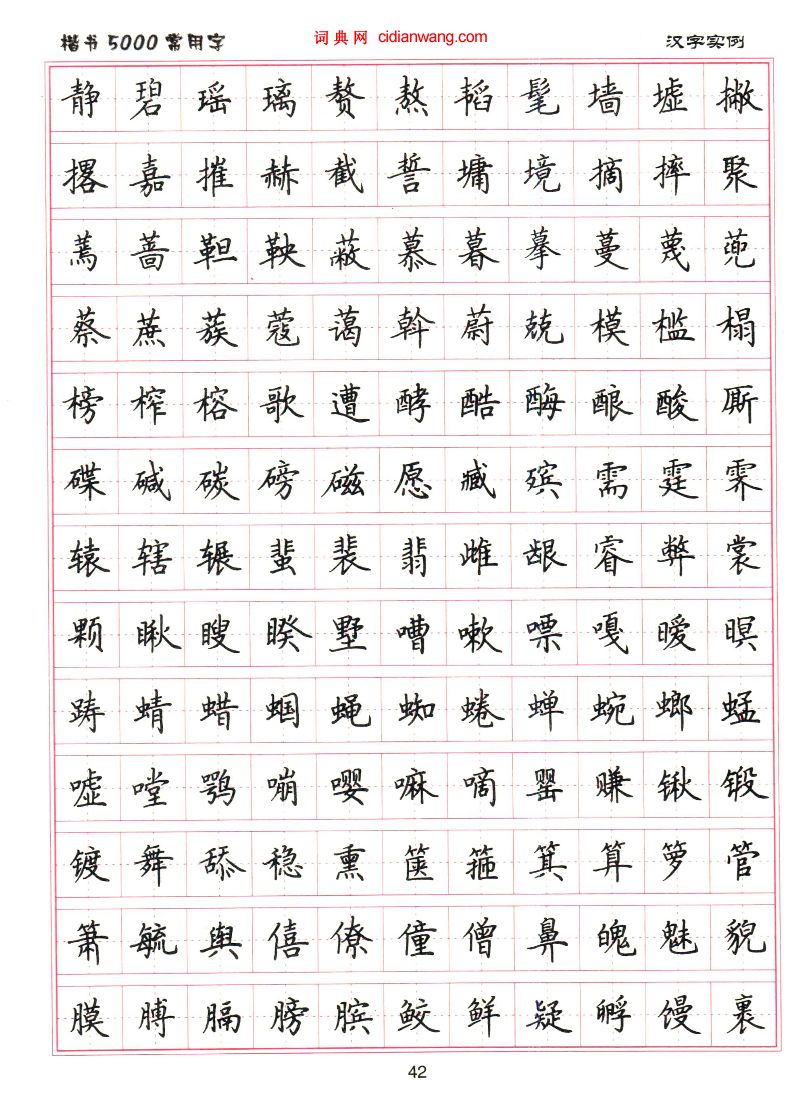 楷书5000常用字 词典网 cidianwang.com 汉字实例
静碧瑶璃赘熬韬髦墙墟撇
撂嘉摧赫截誓墉境摘摔聚
蔫蔷靼鞅蔽慕暮摹蔓蔑蔸
蔡蔗蔟蔻蔼斡蔚兢模槛榻
榜榨榕歌遭酵酷酶酿酸厮
碟碱碳磅磁愿臧殡需霆霁
辕辖辗蜚裴翡雌龈睿弊裳
颗瞅瞍睽墅嘈嗽嘌嘎暧暝
踌蜻蜡蝈蝇蜘蜷蝉蜿螂蜢
嘘嘡鹗嘣嘤嘛嘀罂赚锹锻
镀舞舔稳熏箧箍箕算箩管
箫毓舆僖僚僮僧鼻魄魅貌
膜膊膈膀膑鲛鲜疑孵馒裹
42